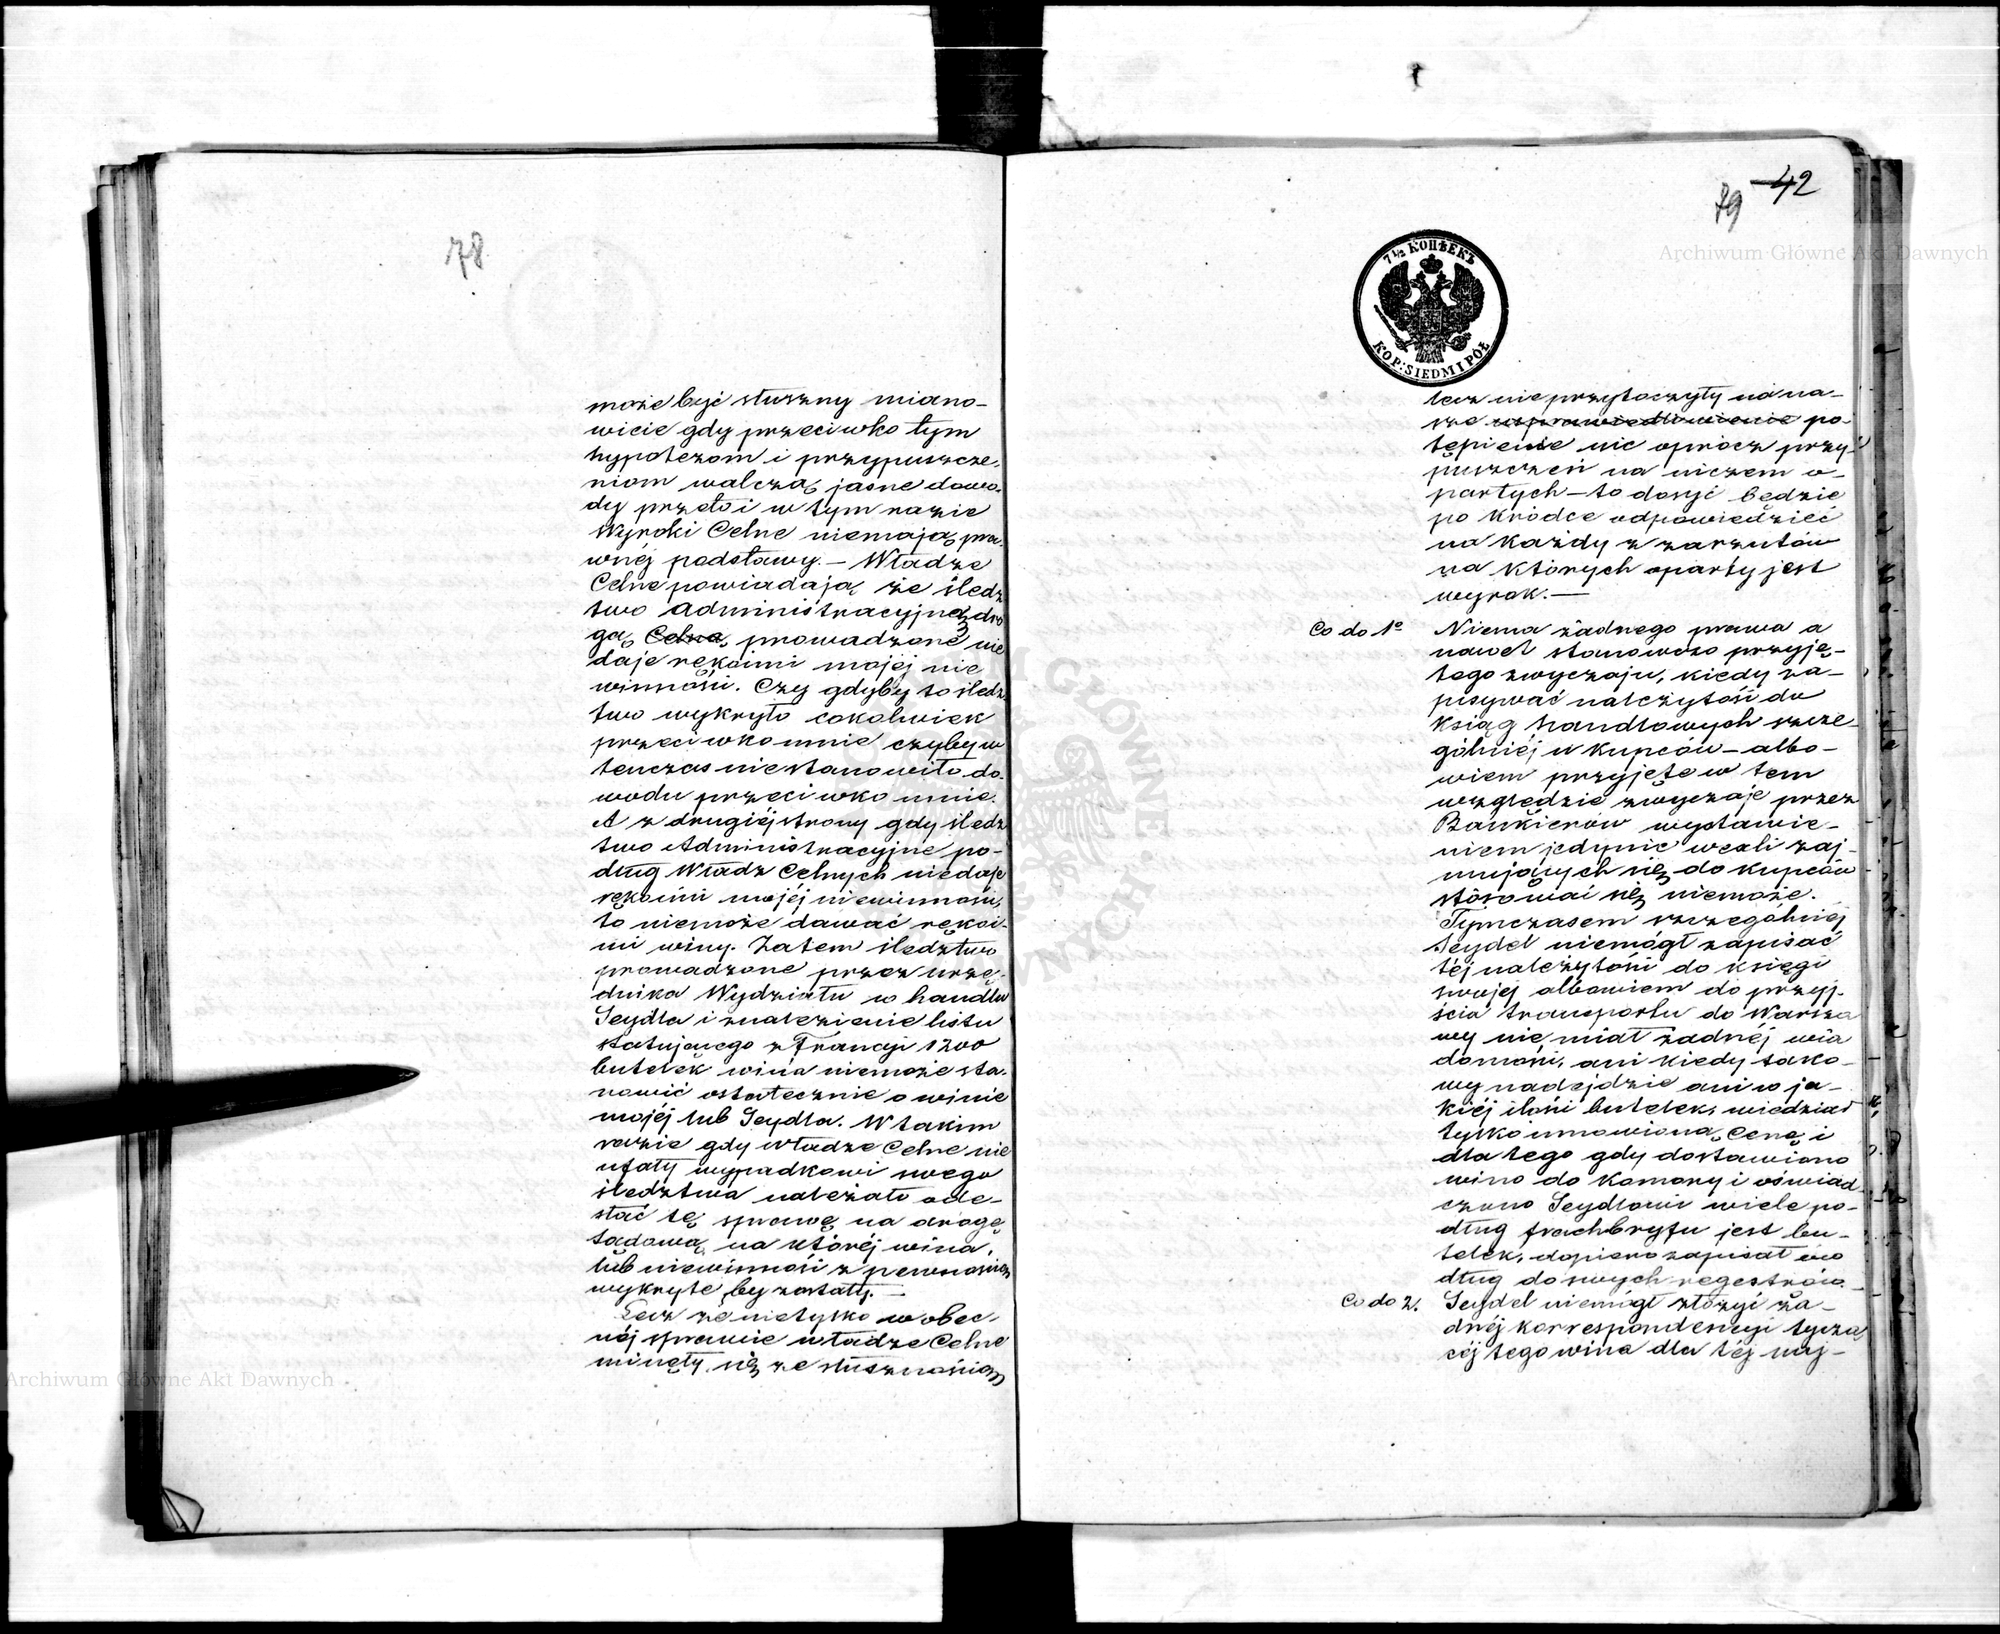 78
może być słuszny miano-
wicie gdy przeciwko tym
hypotezom i przypuszcze-
niom walczą jasne dowo-
dy przeto i w tym razie
Wyroki Celne niemają pra-
wnéj podstawy. — Władze
Celne powiadają że śledz
two administracyjną dro
gą Celną prowadzone nie
daje rękoimi mojéj nie
winności. Czy gdyby to śledz
two wykryło cokolwiek
przeciwko mnie czyby w
tenczas nie stanowiło do-
wodu przeciwko mnie.
A z drugiéj strony gdy śledz
two Administracyjne po-
dług Władz Celnych niedaje
rękoimi mojéj niewinności,
to niemoże dawać rękoi-
mi winy. Zatem śledztwo
prowadzone przez urzę-
dnika Wydziału w handlu
Seydla i znalezienie listu
statującego z Francyi 1200
butelek wina niemoże sta-
nowić ostatecznie o winie
mojéj lub Seydla. W takim
razie gdy Władze Celne nie
ufały wypadkowi swego
śledztwa należało ode-
słać tę sprawę na drogę
sądową, na któréj wina,
lub niewinność z pewnością
wykryte by zostały. —
Lecz że nietylko w obec-
néj sprawie władze Celne
minęły się ze słusznością
42
79
7½ КОПѢЕКЪ
KOP: SIEDM I PÓŁ
lecz nie przytoczyły na na-
sze usprawiedliwienie po-
tępienie nic oprócz przy-
puszczeń na niczem o-
partych — to dosyć będzie
po kródce odpowiedzieć
na każdy z zarzutów
na których oparty jest
wyrok. —
Co do 1º Niema żadnego prawa a
nawet stanowczo przyję-
tego zwyczaju, kiedy za-
pisywać należytość do
ksiąg handlowych szcze-
gólniéj u kupców — albo-
wiem przyjęte w tem
względzie zwyczaje przez
Bankierów wystawie-
niem jedynie wexli zaj-
mujących się do kupców
stósować się niemoże.
Tymczasem szczególniéj
Seydel niemógł zapisać
téj należytości do księgi
swojej albowiem do przyj-
ścia transportu do Warsza
wy nie miał żadnéj wia
domości, ani kiedy tako-
wy nadejdzie ani w ja-
kiéj ilości butelek, wiedział
tylko umowioną cenę i
dla tego gdy dostawiono
wino do Komory i oświad
czono Seydlowi wiele po-
dług frachbryfu jest bu-
telek, dopiero zapisał ów
dług do swych regestrów.
Co do 2. Seydel niemógł złożyć ża-
dnéj korrespondencyi tyczą
céj tego wina dla téj naj-
Archiwum Główne Akt Dawnych
Archiwum Główne Akt Dawnych